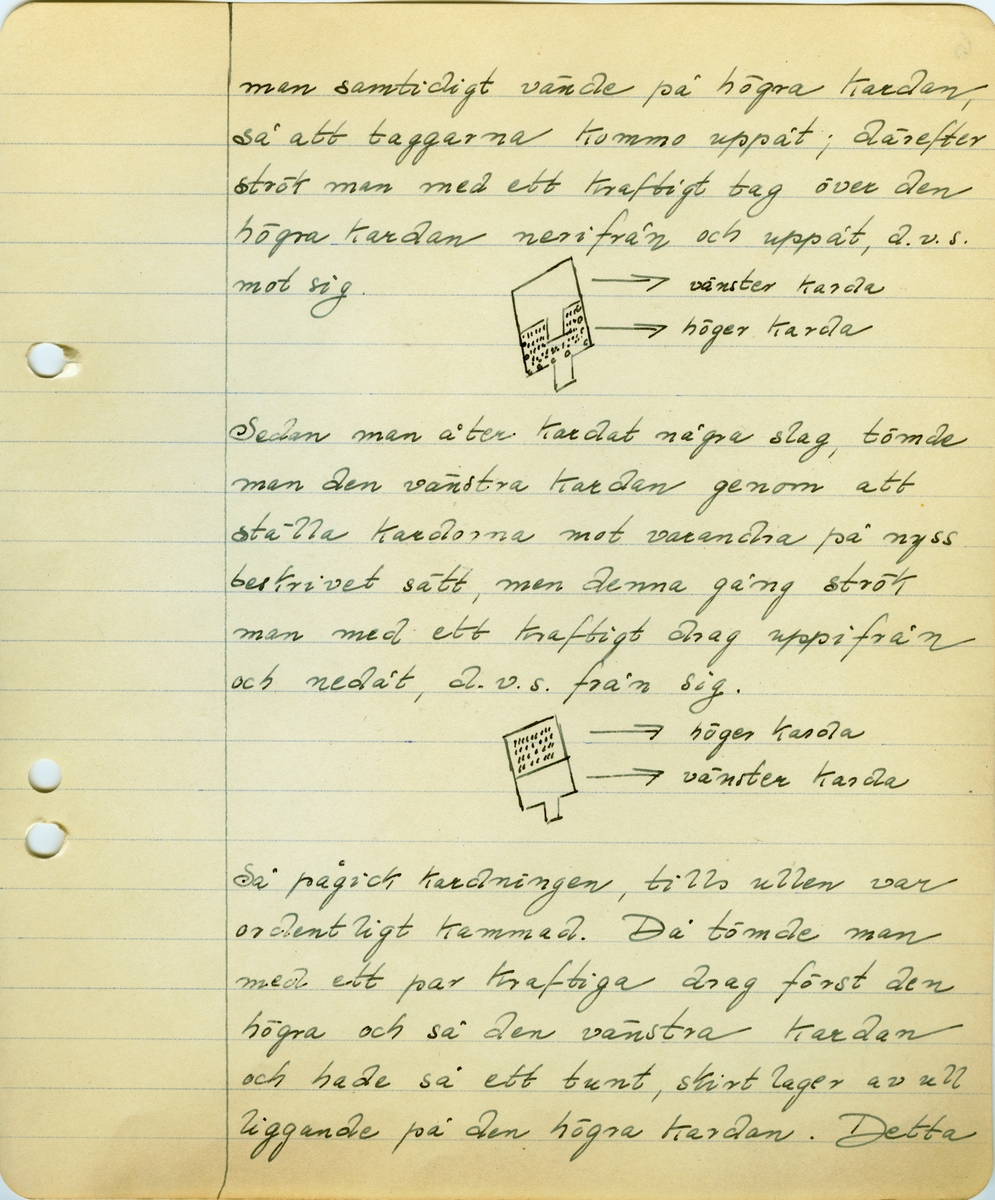 man samtidigt vände på högra kardan,
så att taggarna kommo uppåt; därefter
strök man med ett kraftigt tag över den
högra kardan nerifrån och uppåt, d.v.s.
mot sig.
vänster karda
höger karda
Sedan man åter kardat några slag, tömde
man den vänstra kardan genom att
ställa kardorna mot varandra på nyss
beskrivet sätt, men denna gång strök
man med ett kraftigt drag uppifrån
och nedåt, d.v.s. från sig.
höger karda
vänster karda
Så pågick kardningen, tills ullen var
ordentligt kammad. Då tömde man
med ett par kraftiga drag först den
högra och så den vänstra kardan
och hade så ett tunt, skirt lager av ull
liggande på den högra kardan. Detta